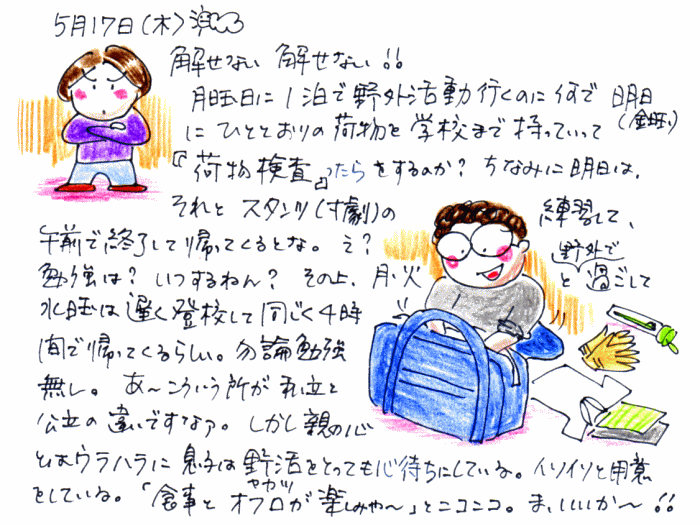 5月17日(木)
解せない 解せない!!
月曜日に1泊で野外活動行くのに何で 明日
(金曜)
にひととおりの荷物を学校まで持っていって
『荷物検査』ったらをするのか? ちなみに明日は、
それと スタンツ(寸劇)の 練習して、
午前で終了して帰ってくるとな。え?
勉強は? いつするねん? その上、月・火
野外で
と過ごして
水曜は遅く登校して同じく4時
間で帰ってくるらしい。勿論勉強
無し。あ〜こういう所が私立と
公立の違いですなァ。しかし親の心
とはウラハラに息子は野活をとっても心待ちにしている。イソイソと用意
ヤカツ
をしている。「食事とオフロが楽しみや〜」とニコニコ。ま、いいか〜!!